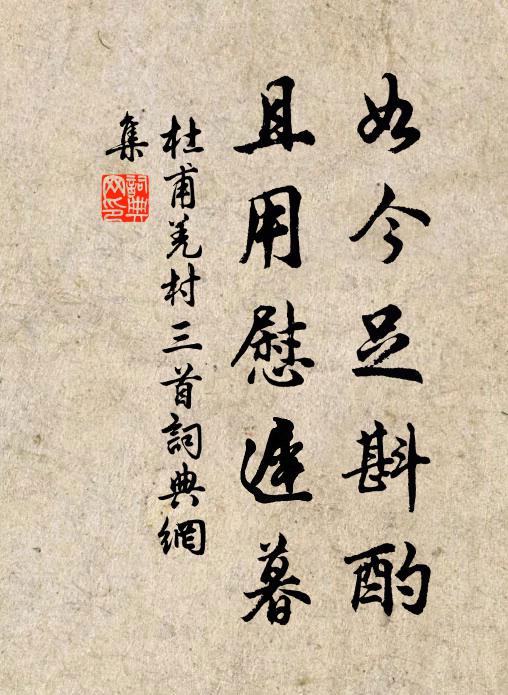 如今足斟酌
且用慰遲暮
杜甫羌村三首詞典網
集
詞典網印